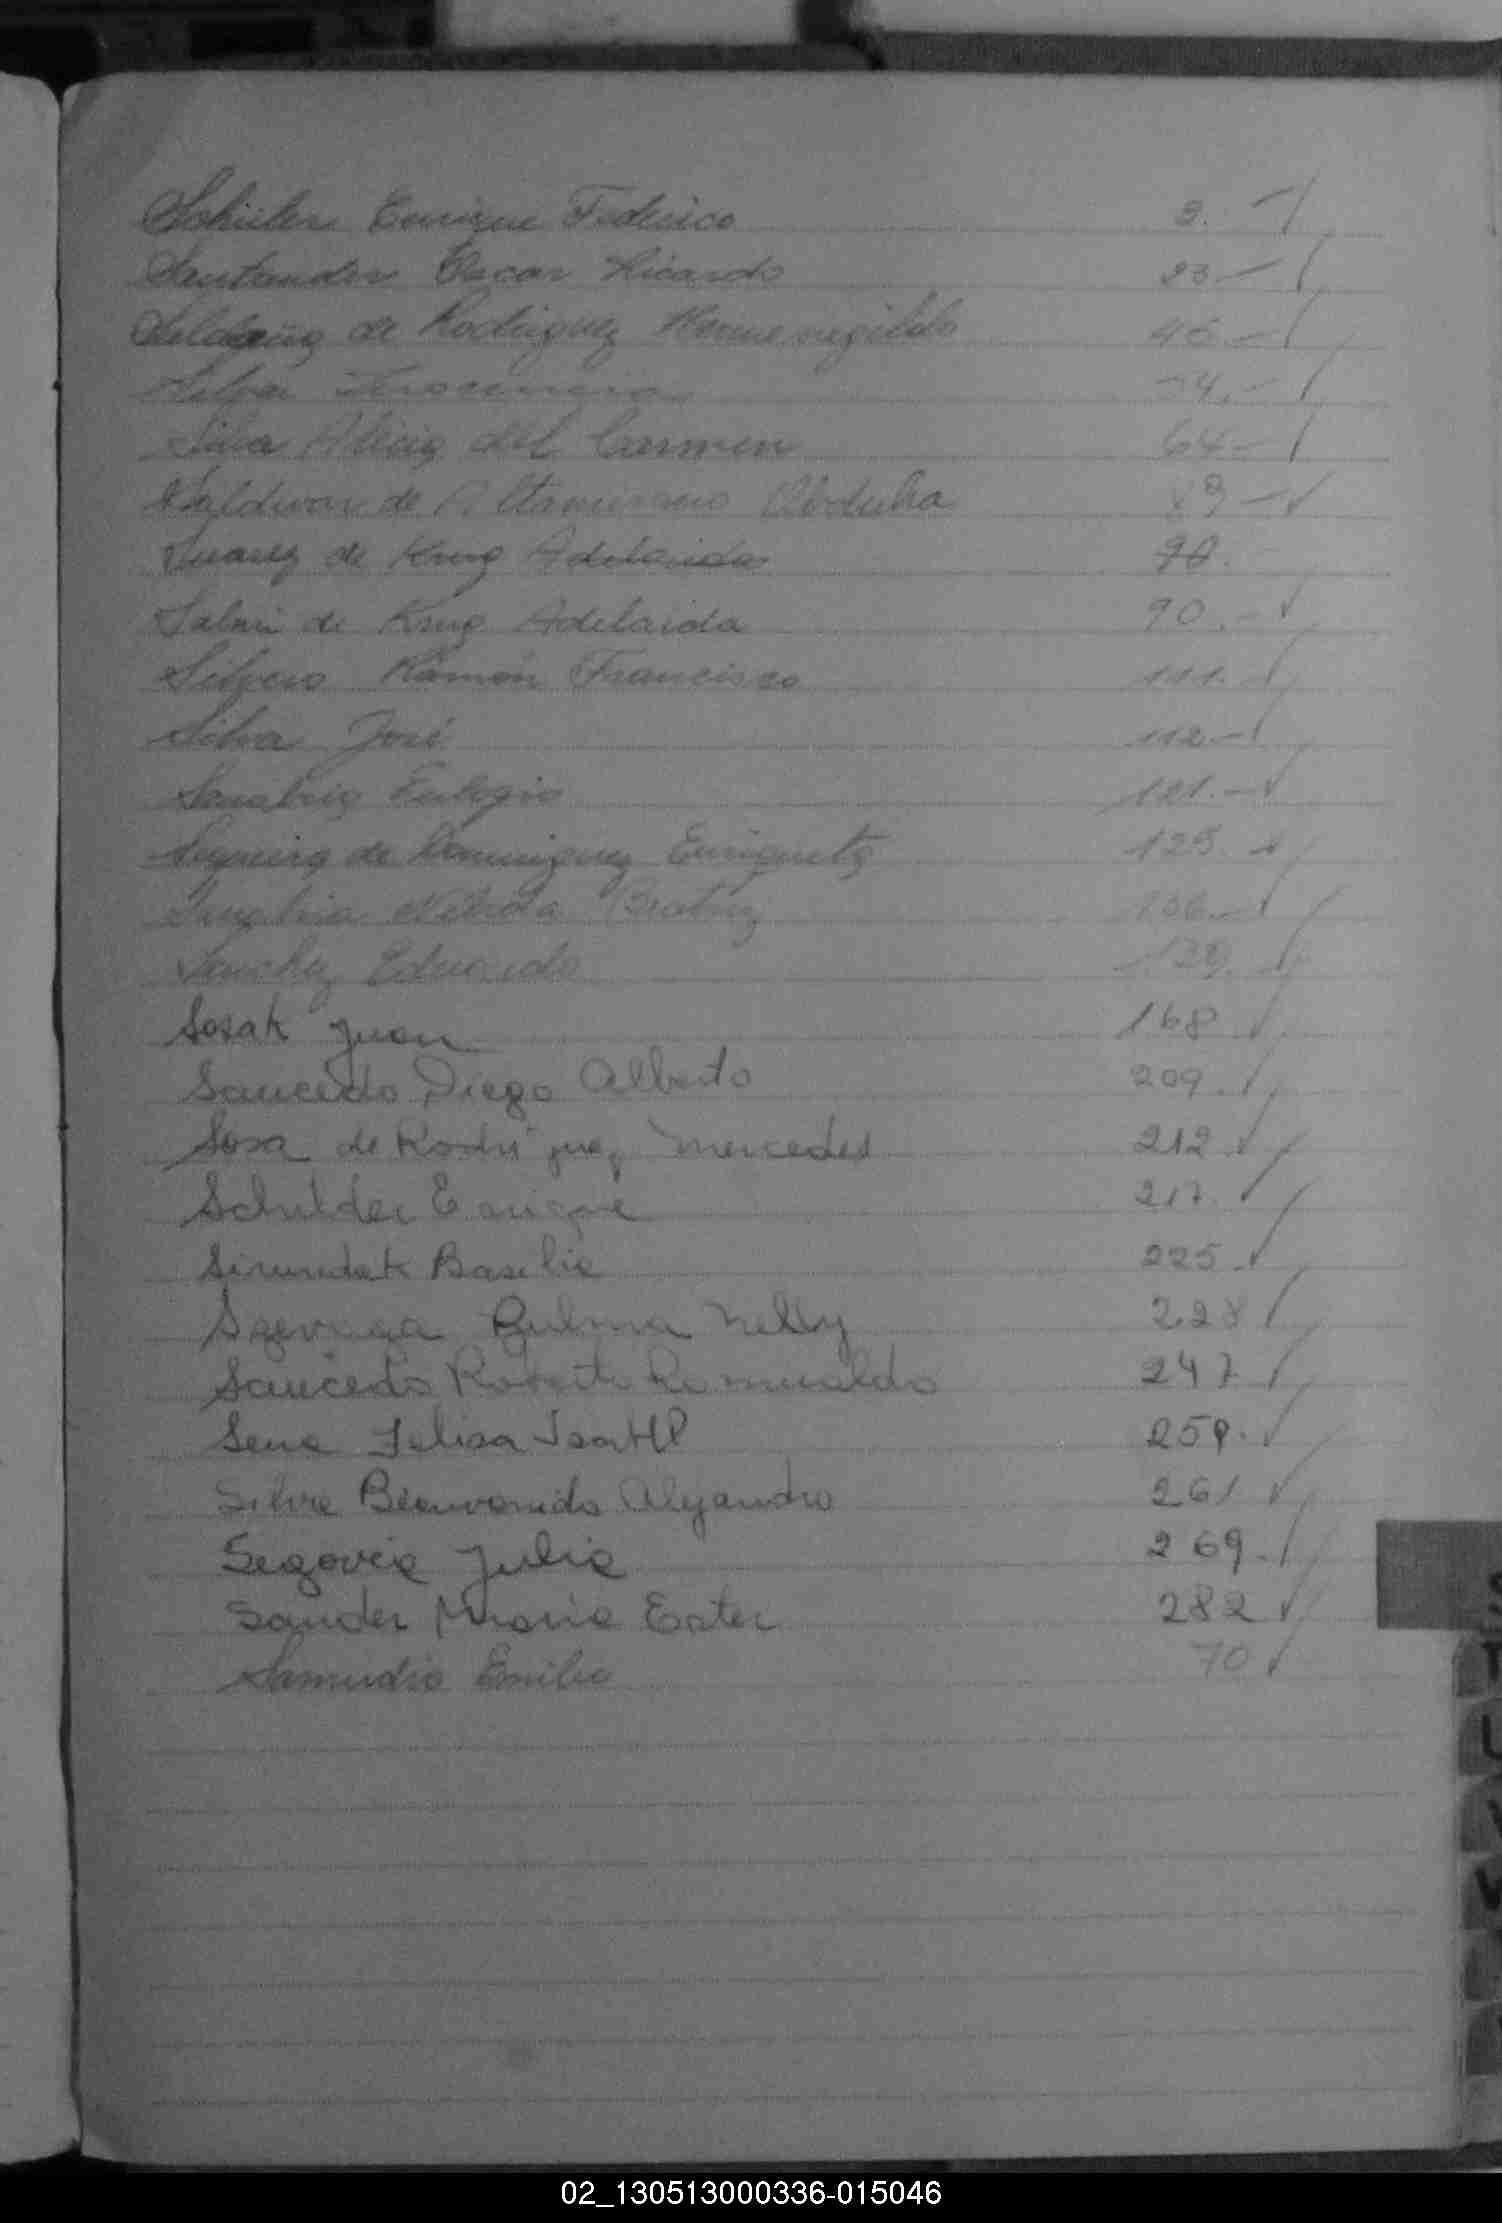 Schüler Enrique Federico 3.
Santander Oscar Ricardo 23
de Rodriguez Hermenegildo 46
Silva 54
Silva Alicia del Carmen 64
Saldivar de Altamirano Obdulia 89
Suarez de Krug Adelaida 90.
de Krug Adelaida 90
Silvero Ramón Francisco 111.
Silva José 112
Sanabria Eulogio 121.
de Dominguez Enriqueta 125.
Sanabria Nélida Beatriz 136
Sanchez Eduardo 139.
Sosak Juan 168
Saucedo Diego Alberto 209.
Sosa de Rodriguez Mercedes 212
Schulder Enrique 217.
Basilia 225
Nelly 228
Saucedo Roberto Romualdo 247
Sena Felisa Isabel 259.
Silva Bienvenido Alejandro 261
Segovia Julia 269.
Sander Maria Ester 282
Samudio Emilio 70
S
T
U
V
02_130513000336-015046